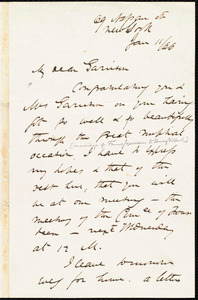 69 Nassau St
New York
Jan 11/66
My dear Garrison
Congratulating you &
Mrs Garrison on you having
got so well & so beautifully
through the great nuptial
occasion, I have to express
my hopes & that of the
rest here, that you will
be at our meeting - the
meeting of the
been - next Wednesday
at 12 M.
I leave tomorrow
for home. a letter